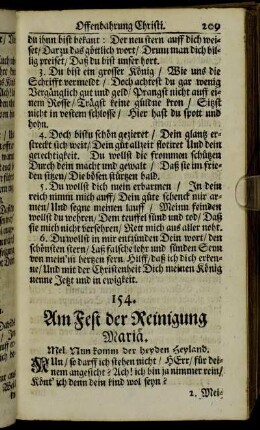 Offenbahrung Christi. 209
du ihnn bist bekant: Der neu stern auff dich wei-
set/ Darzu das göttlich wort/ Drum man dich bil-
lig preiset/ Daß du bist unser hort.
3. Du bist ein grosser König/ Wie uns die
Schrifft vermeldt/ Doch achtest du gar wenig
Vergänglich gut und geld/ Prangst nicht auff ei-
nem Rosse/ Trägst keine güldne kron/ Sitzst
nicht in vestem schlosse/ Hier hast du spott und
hohn.
4. Doch bistu schön gezieret/ Dein glantz er-
streckt sich weit/ Dein güt allzeit flotiret Und dein
gerechtigkeit. Du wollst die frommen schützen
Durch dein macht und gewalt/ Daß sie im frie-
den sitzen/ Die bösen stürtzen bald.
5. Du wollst dich mein erbarmen/ In dein
reich nimm mich auff/ Dein güte schenck mir ar-
men/ Und segne meinen lauff/ Meinn feinden
wollst du wehren/ Dem teuffel sünd und tod/ Daß
sie mich nicht versehren/ Rett mich aus aller noht.
6. Du wollst in mir entzünden Dein wort/ den
schönsten stern/ Laß falsche lehr und sünden Seyn
von mein'm hertzen fern. Hilff/ daß ich dich erken-
ne/ Und mit der Christenheit Dich meinen König
nenne Jetzt und in ewigkeit.
154.
Am Fest der Reinigung
Mariä.
Mel. Nun komm der heyden Heyland.
NUn/ so darff ich stehen nicht/ HErr/ für dei-
nem angesicht? Ach! ich bin ja nimmer rein/
Könt' ich denn dein kind wol seyn?
2. Mei-